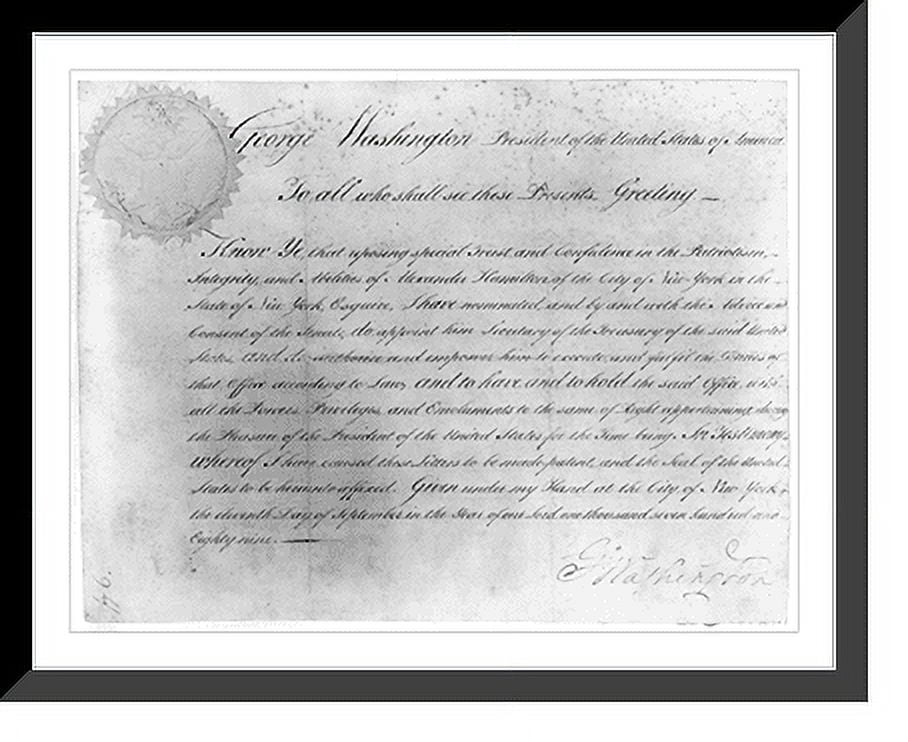 George Washington President of the United States of America
To all who shall see these Presents Greeting
Know Ye, that reposing special Trust and Confidence in the Patriotism,
Integrity, and Abilities of Alexander Hamilton, of the City of New York in the
State of New York, Esquire, I have nominated, and by and with the Advice and
Consent of the Senate, do appoint him Secretary of the Treasury of the said United
States, and do authorize and empower him to execute and fulfil the Duties of
that Office according to Law; and to have and to hold the said Office, with
all the Powers, Privileges, and Emoluments to the same of Right appertaining during
the Pleasure of the President of the United States for the Time being. In Testimony
whereof I have caused these Letters to be made patent, and the Seal of the United
States to be hereunto affixed. Given under my Hand at the City of New York
the eleventh Day of September in the Year of our Lord one thousand seven hundred and
Eighty nine.
G Washington